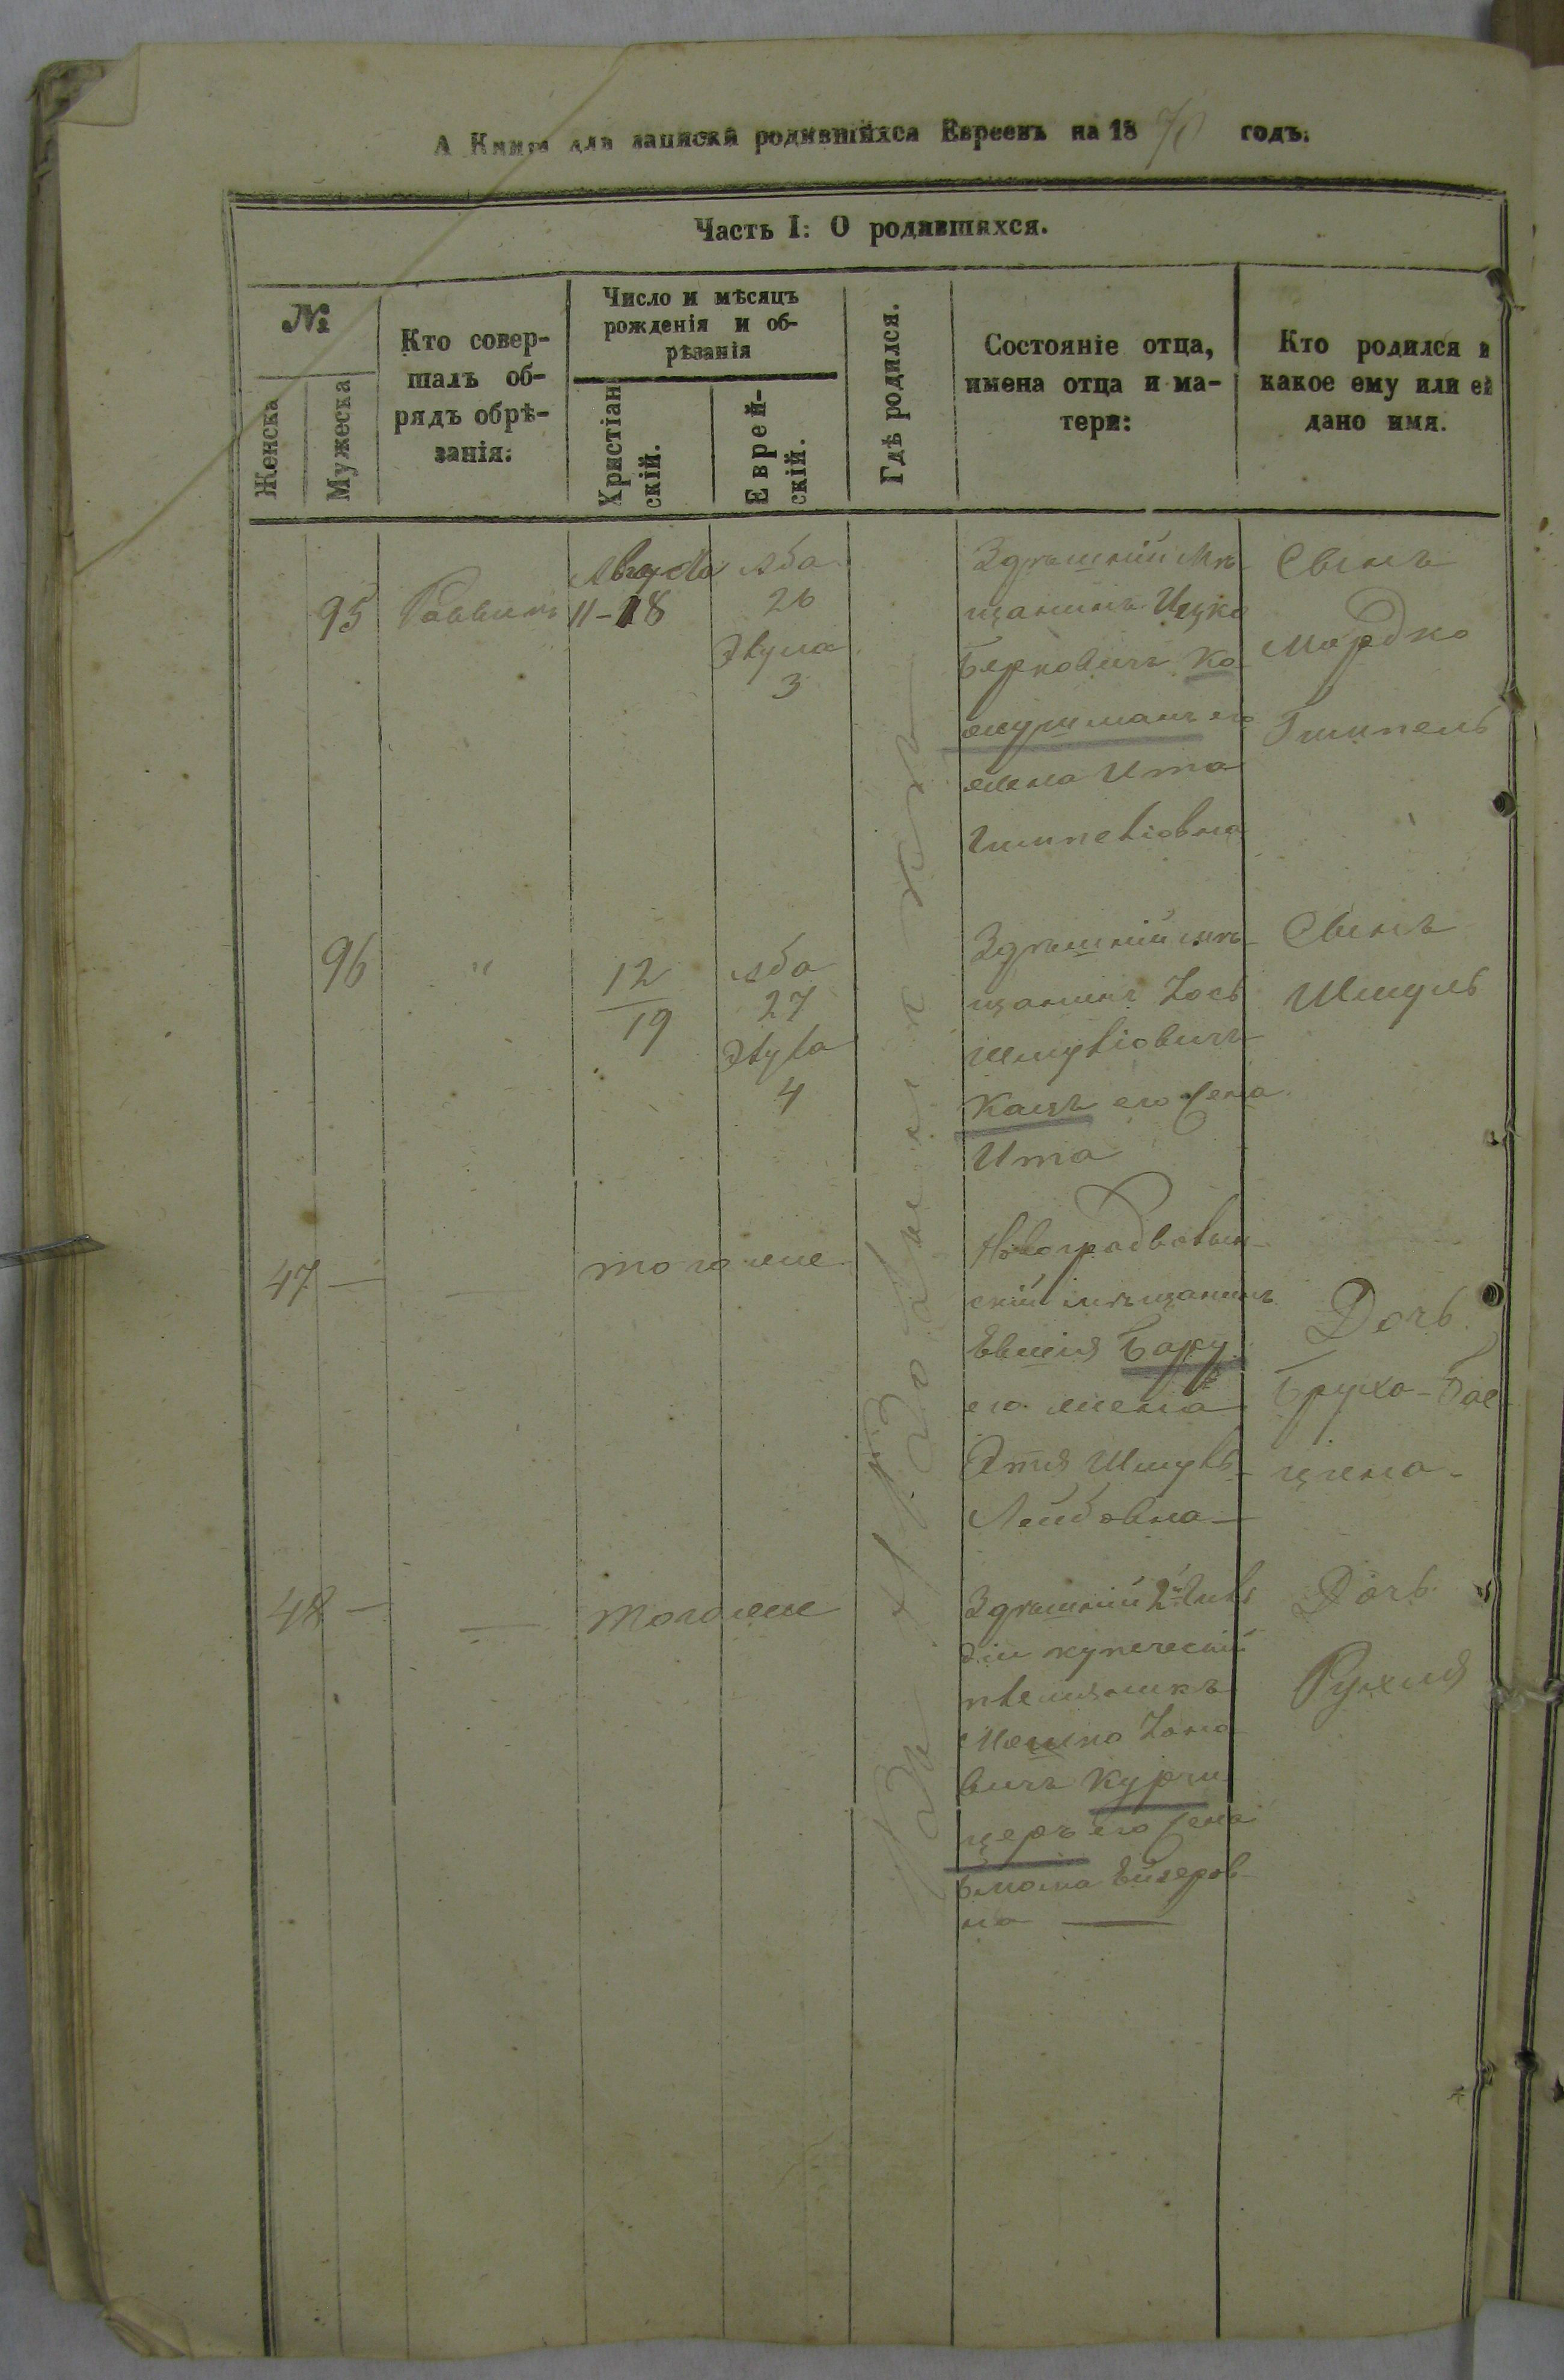 А Книга для записки родившихся Евреевъ на 1870 годъ.
Часть I: О родившихся.
№
Женска
Мужеска
Кто совер-
шалъ об-
рядъ обрѣ-
занія:
Число и мѣсяцъ
рожденія и об-
рѣзанія
Христіан
скій.
Еврей-
скій.
Гдѣ родился.
Состояніе отца,
имена отца и ма-
тери:
Кто родился и
какое ему или ей
дано имя.
95
Раввинъ
Августа
11-18
Аба
26
Элула
3
Здѣшній мѣ-
щанинъ Ицко
Берковичъ Ко
его
жена Ита
Гимпеліовна
Сынъ
Мордко
Гимпель
96
"
12
19
Аба
27
Элула
4
Здѣшній мѣ-
щанинъ Іось
Шмуліовичъ
Кацъ его жена
Ита
Сынъ
Шмуль
47 —
—
тогоже
Новоградволын-
скій мѣщанинъ
его жена
Этя Шмуль-
Лейбовна —
Дочь
Бруха-
48 —
—
тогоже
Здѣшній 2й гиль
діи купеческій
племянникъ
Мошко
вичъ Курчи
церъ его жена
на —
Дочь
Рухля